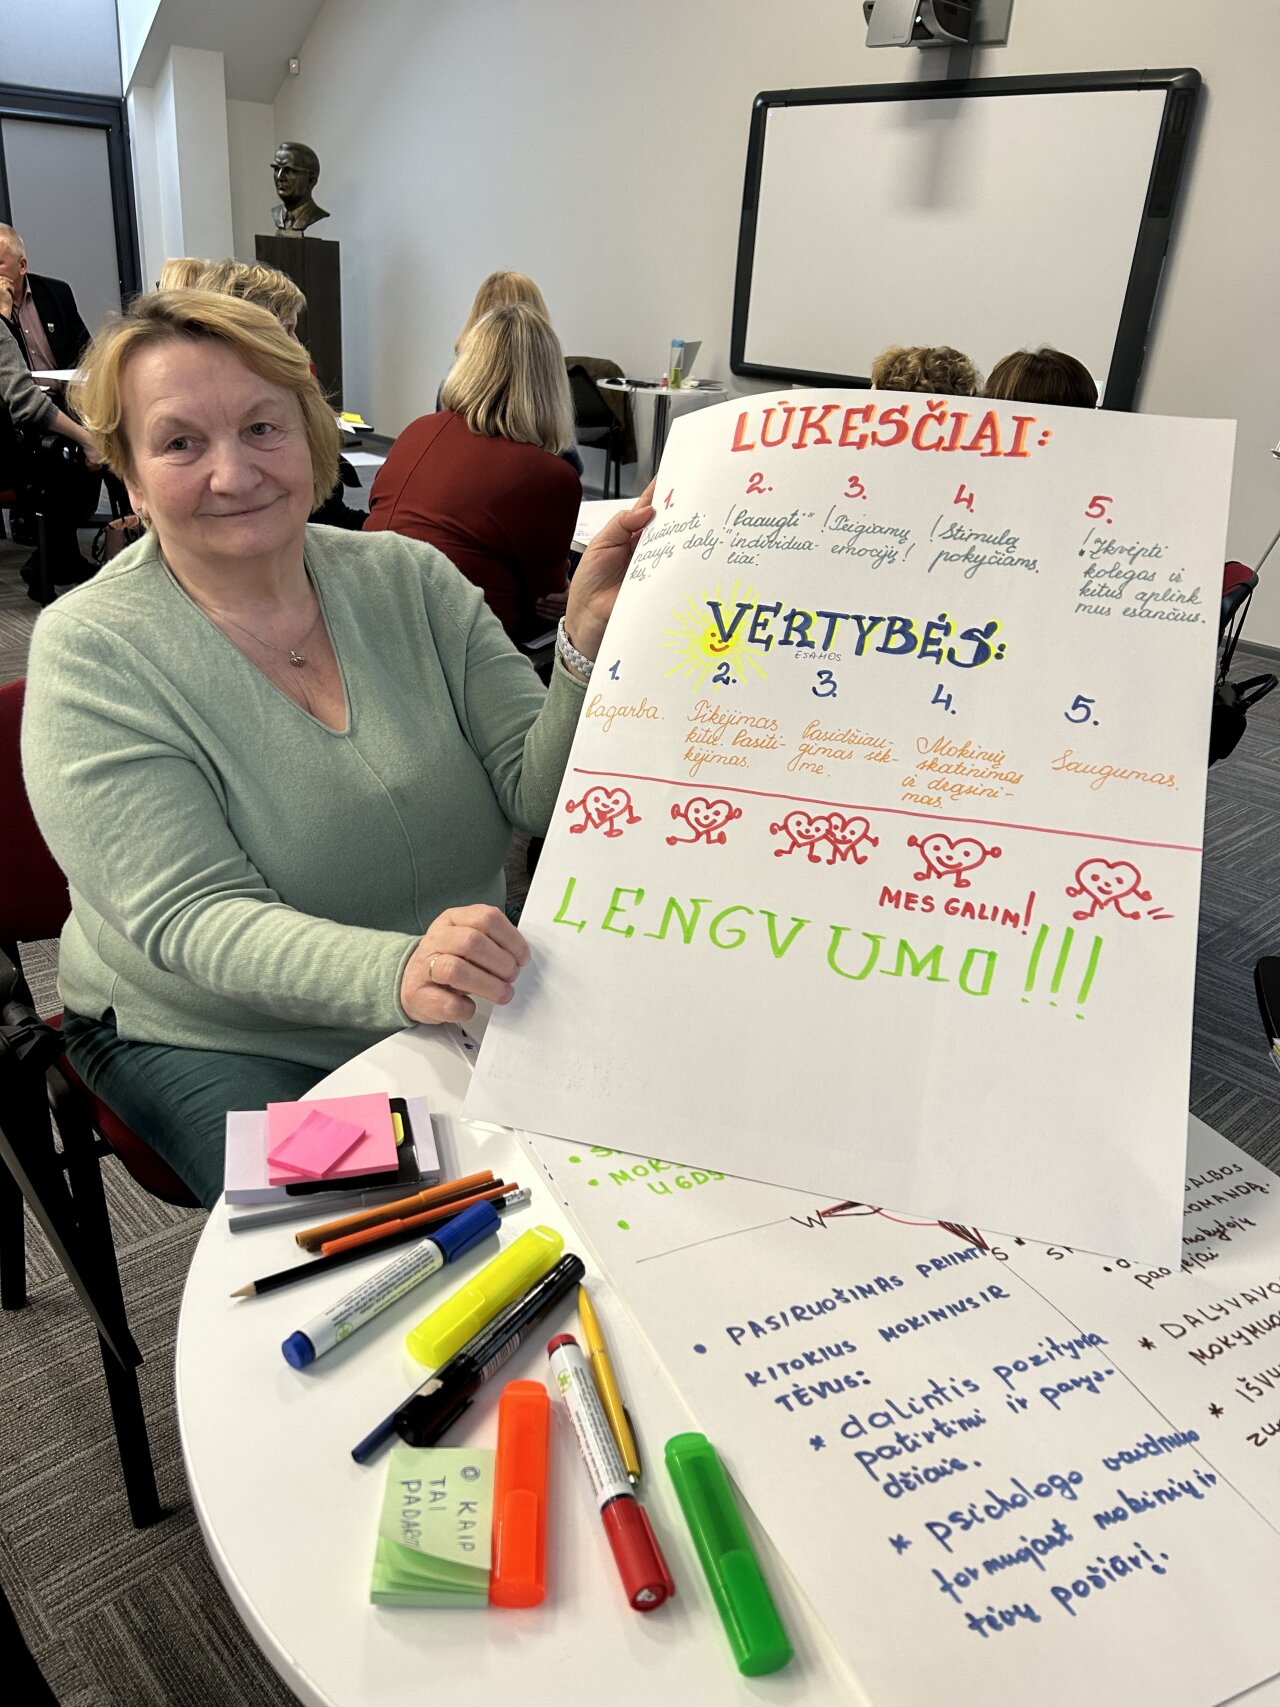 LŪKESČIAI:
1. 2. 3. 4. 5.
Sužinoti
naujų daly-
kų.
! "Paaugti"
individua-
liai.
! Teigiamų
emocijų!
! Stimulą
pokyčiams.
! Įkvėpti
kolegas ir
kitus aplink
mus esančius.
VERTYBĖS:
ESAMOS
1. 2. 3. 4. 5.
Pagarba.
Tikėjimas
kitu. Pasiti-
kėjimas.
Pasidžiau-
gimas sėk-
me.
Mokinių
skatinimas
ir drąsini-
mas.
Saugumas.
MES GALIM!
LENGVUMO!!!
• MOK
UGDY
• PASIRUOŠIMAS PRIIMTI
KITOKIUS MOKINIUS IR
TĖVUS:
* dalintis pozityvia
patirtimi ir pavyz-
džiais.
* psichologo vaidmuo
formuojant mokinių ir
tėvų požiūrį.
KOMANDĄ.
* DALYVAVO
MOKYMUO
* IŠVY
KAIP
TAI
PADARYT